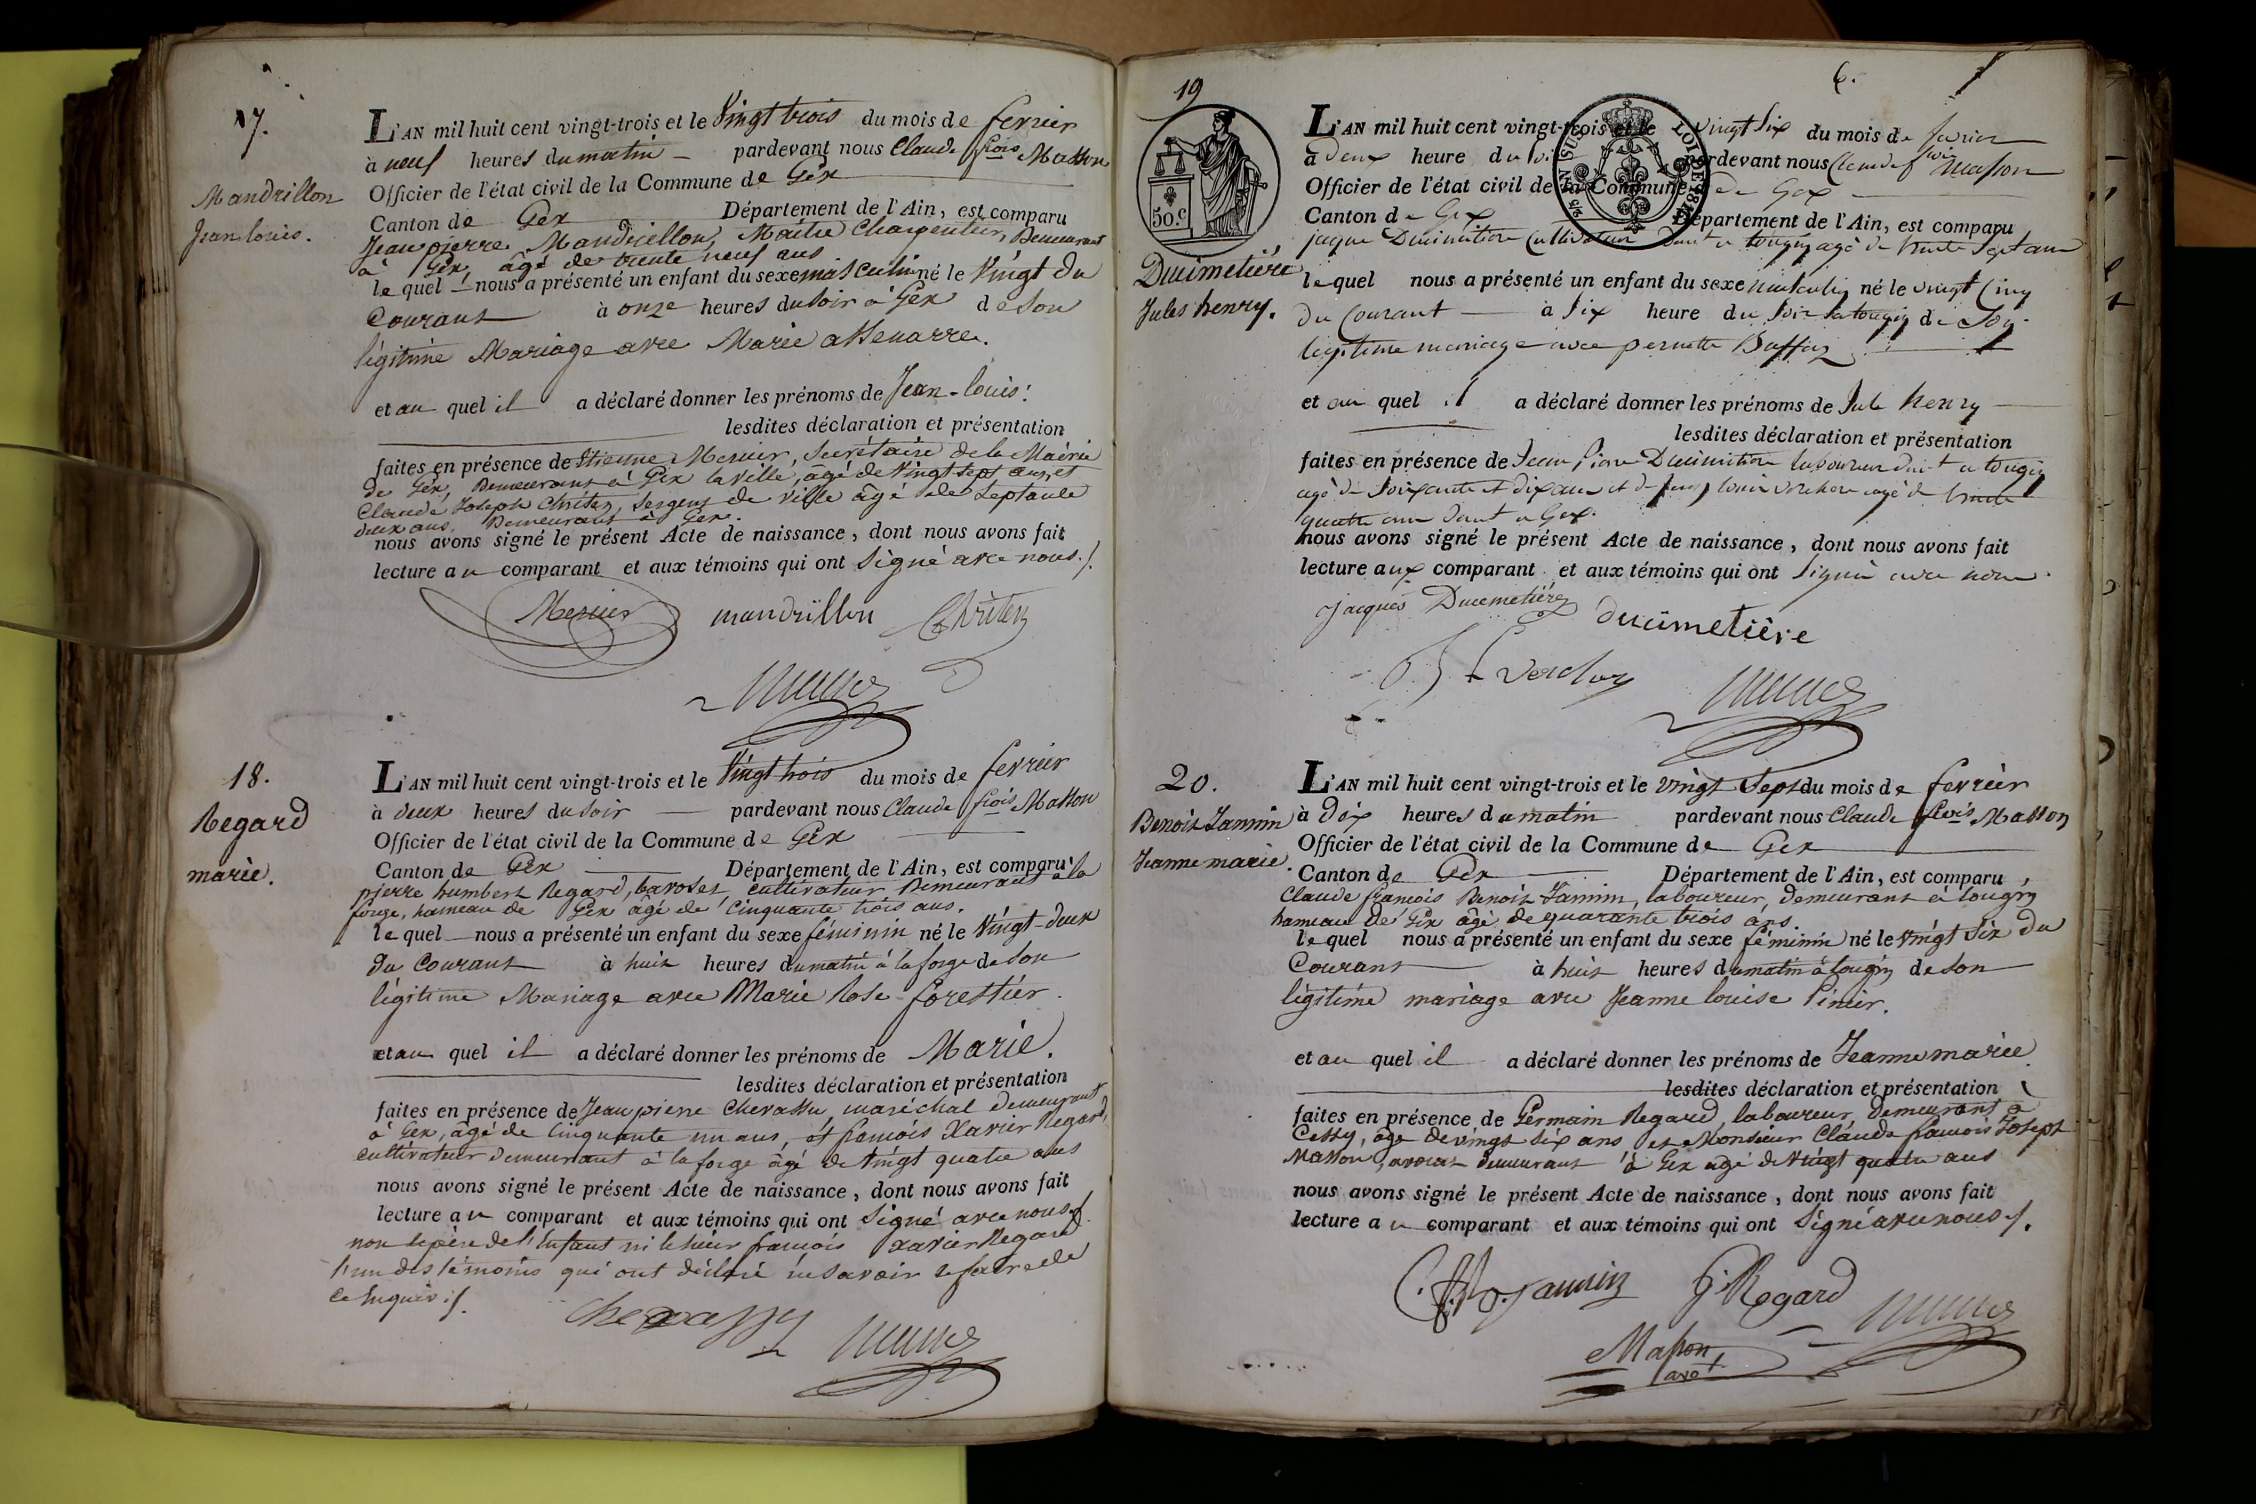 17.
Mandrillon
Jean louis.
L'AN mil huit cent vingt-trois et le Vingt trois du mois de fevrier
à neuf heures du matin pardevant nous Claude frois Masson
Officier de l'état civil de la Commune de Gex
Canton de Gex Département de l'Ain, est comparu
Jean pierre Mandrillon, Maitre Charpentier, Demeurant
à Gex, âgé de trente neuf ans
le quel nous a présenté un enfant du sexe masculin né le Vingt du
Courant à onze heures du Soir à Gex de Son
légitime Mariage avec Marie
et au quel il a déclaré donner les prénoms de Jean-louis.
lesdites déclaration et présentation
faites en présence de Etienne Mercier, Secrétaire de la Mairie
de Gex, Demeurant à Gex la Ville, âgé de Vingt sept ans, et
Claude Joseph Christin, Sergent de Ville âgé de Septante
deux ans, Demeurant à Gex.
nous avons signé le présent Acte de naissance, dont nous avons fait
lecture au comparant et aux témoins qui ont Signé avec nous./.
Mercier mandrillon Christin
18.
Regard
marie.
L'AN mil huit cent vingt-trois et le Vingt trois du mois de fevrier
à deux heures du Soir pardevant nous Claude frois Masson
Officier de l'état civil de la Commune de Gex
Canton de Gex Département de l'Ain, est comparu
pierre humbert Regard, cultivateur Demeurant à la
forge, hameau de Gex âgé de Cinquante trois ans.
le quel nous a présenté un enfant du sexe féminin né le Vingt-deux
du Courant à huit heures du matin à la forge de Son
légitime Mariage avec Marie Rose forestier.
et au quel il a déclaré donner les prénoms de Marie.
lesdites déclaration et présentation
faites en présence de Jean pierre Chevassu, maréchal demeurant
à Gex, âgé de Cinquante un ans, et françois Xavier Regard,
cultivateur demeurant à la forge âgé de Vingt quatre ans
nous avons signé le présent Acte de naissance, dont nous avons fait
lecture au comparant et aux témoins qui ont Signé avec nous./.
non le père de l'Enfant ni le Sieur françois Xavier Regard
l'un des témoins qui ont déclaré ne Savoir le faire de
ce Enquis ./.
Chevassu
6.
19
50.c
LOI DE 1816
Ducimetière
Jules henry.
L'AN mil huit cent vingt-trois et le vingt Six du mois de fevrier
à deux heure du Soir pardevant nous Claude frois Masson
Officier de l'état civil de la Commune de Gex
Canton de Gex Département de l'Ain, est comparu
jaque Ducimetière Cultivateur dmt a tougin agé de trente Sept ans
le quel nous a présenté un enfant du sexe masculin né le vingt Cinq
du Courant à Six heure du Soir a tougin de Son
legitime mariage avec pernette Buffaz
et au quel il a déclaré donner les prénoms de Jule henry
lesdites déclaration et présentation
faites en présence de Jean Pierre Ducimetiere laboureur dmt a tougin
agé de Soixante et dix ans et de louis agé de trente
quatre ans dmt a Gex.
nous avons signé le présent Acte de naissance, dont nous avons fait
lecture aux comparant et aux témoins qui ont Signé avec nous.
jacques Ducimetière ducimetière
20.
Benoit Jannin
Jeanne marie.
L'AN mil huit cent vingt-trois et le vingt Sept du mois de fevrier
à dix heures du matin pardevant nous Claude frois Masson
Officier de l'état civil de la Commune de Gex
Canton de Gex Département de l'Ain, est comparu
Claude françois Benoit Jannin, laboureur, demeurant à tougin,
hameau de Gex âgé de quarante trois ans.
le quel nous a présenté un enfant du sexe féminin né le vingt Six du
Courant à huit heures du matin à tougin de Son
légitime mariage avec Jeanne louise
et au quel il a déclaré donner les prénoms de Jeanne marie
lesdites déclaration et présentation
faites en présence de Germain Regard, laboureur, demeurant à
Cessy, âgé de vingt Six ans et Monsieur Claude françois Joseph
Masson, avocat demeurant à Gex âgé de Vingt quatre ans
nous avons signé le présent Acte de naissance, dont nous avons fait
lecture au comparant et aux témoins qui ont Signé avec nous./.
G. Regard
Masson
avot